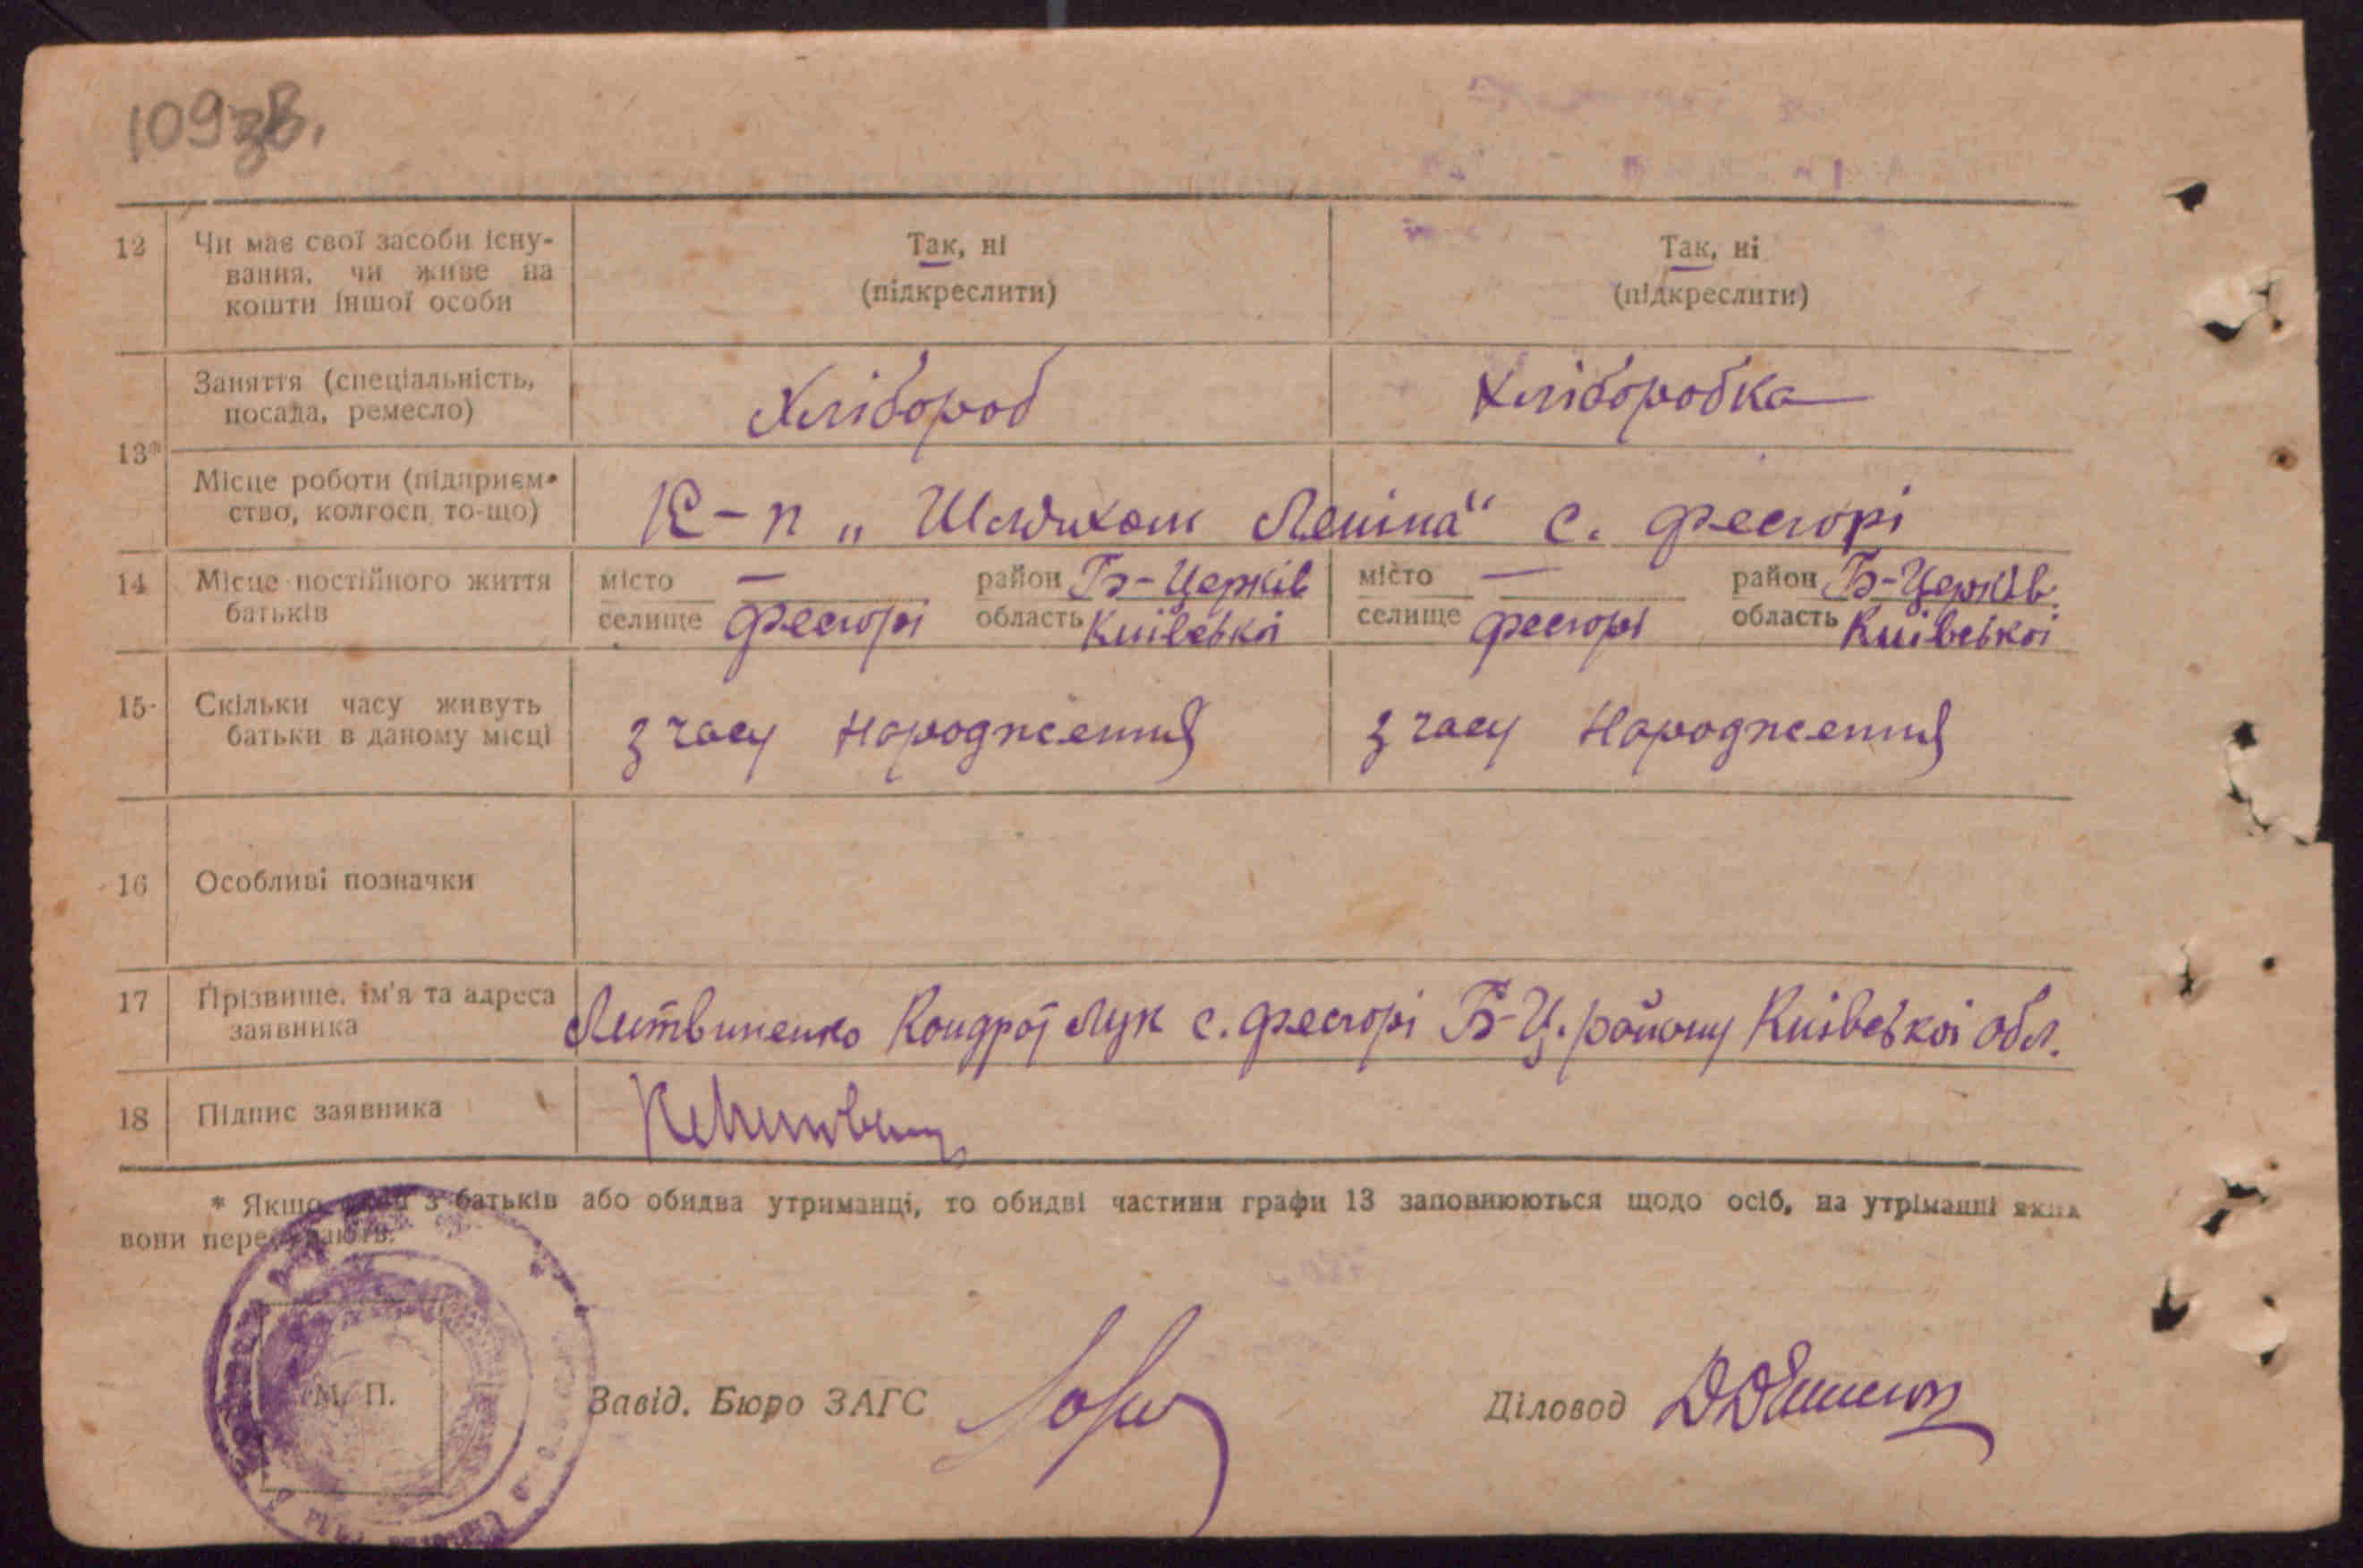 109зв.
12 Чи має свої засоби існу- Так, ні Так, ні
вання, чи живе на (підкреслити) (підкреслити)
кошти іншої особи
Заняття (спеціальність, Хлібороб Хліборобка
посада, ремесло)
13*
Місце роботи (підприєм- К-п „Шляхом Леніна“ с. Фесюрі
ство, колгосп, то-що)
14 Місце постійного життя місто — район Б-Церків місто — район Б-Церків.
батьків селище Фесюрі область Київської селище Фесюрі область Київської
15 Скільки часу живуть з часу народження з часу народження
батьки в даному місці
16 Особливі позначки
17 Прізвище, ім'я та адреса Литвиненко Кондрат Лук с. Фесюрі Б-Ц. району Київської обл.
заявника
18 Підпис заявника
* Якщо з батьків або обидва утриманці, то обидві частини графи 13 заповнюються щодо осіб, на утріманні яких
вони перебувають.
М. П.
Завід. Бюро ЗАГС Діловод